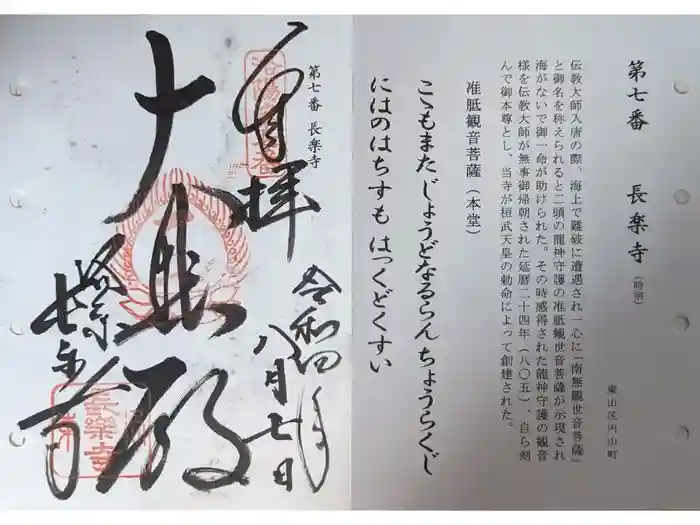 第七番 長楽寺 (時宗)
東山区円山町
伝教大師入唐の際、海上で難破に遭遇され一心に「南無観世音菩薩」
と御名を称えられると二頭の龍神守護の准胝観世音菩薩が示現され
海がないで御一命が助けられた。その時感得された龍神守護の観音
様を伝教大師が無事御帰朝された延暦二十四年(八〇五)、自ら刻
んで御本尊とし、当寺が桓武天皇の勅命によって創建された。
准胝観音菩薩(本堂)
こゝもまた じょうどなるらん ちょうらくじ
にはのはちすも はっくどくすい
第七番 長楽寺
奉拝
令和四年
八月七日
大悲殿
長楽寺